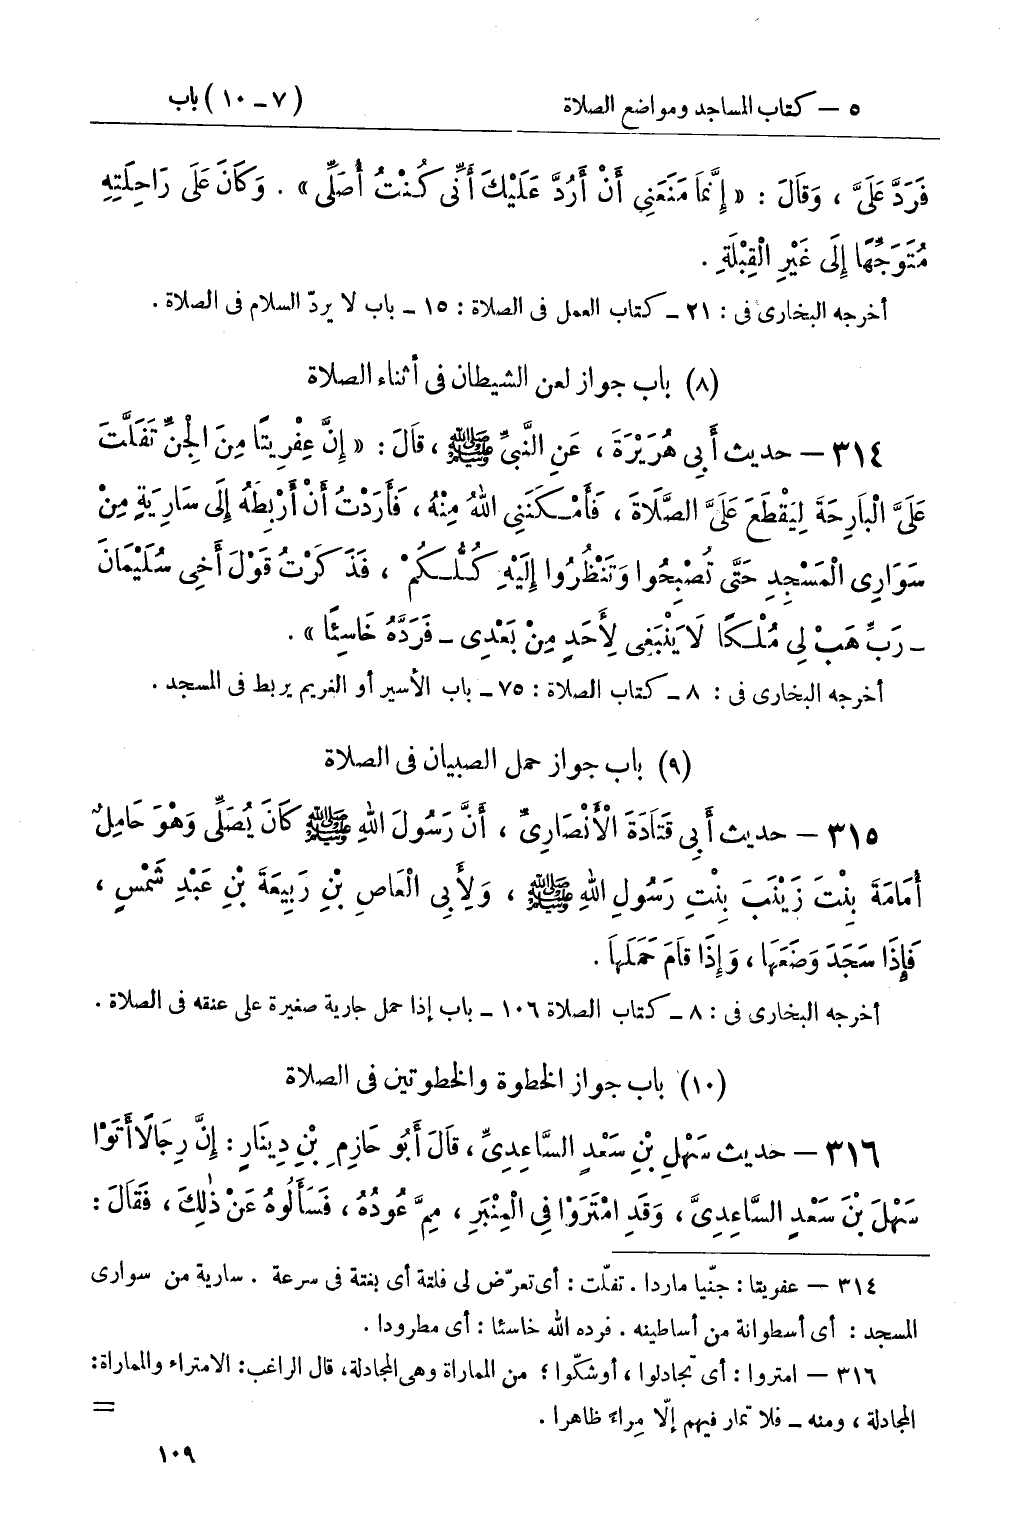 ٥ — كتاب المساجد ومواضع الصلاة (٧ـ١٠) باب
فَرَدَّ عَلَىَّ ، وَقَالَ : « إِنَّمَا مَنَعَنِي أَنْ أَرُدَّ عَلَيْكَ أَنِّى كُنْتُ أُصَلِّى » . وَكَانَ عَلَى رَاحِلَتِهِ
مُتَوَجِّهًا إِلَى غَيْرِ الْقِبْلَةِ .
أخرجه البخارى فى : ٢١ ـ كتاب العمل فى الصلاة : ١٥ ـ باب لا يردّ السلام فى الصلاة .
(٨) باب جواز لعن الشيطان فى أثناء الصلاة
٣١٤ — حديث أَبِى هُرَيْرَةَ ، عَنِ النَّبِىِّ ﷺ ، قَالَ : « إِنَّ عِفْرِيتًا مِنَ الْجِنِّ تَفَلَّتَ
عَلَىَّ الْبَارِحَةَ لِيَقْطَعَ عَلَىَّ الصَّلَاةَ ، فَأَمْكَنَنِى اللهُ مِنْهُ ، فَأَرَدْتُ أَنْ أَرْبِطَهُ إِلَى سَارِيَةٍ مِنْ
سَوَارِى الْمَسْجِدِ حَتَّى تُصْبِحُوا وَتَنْظُرُوا إِلَيْهِ كُلُّكُمْ ، فَذَكَرْتُ قَوْلَ أَخِى سُلَيْمَانَ
ـ رَبِّ هَبْ لِى مُلْكًا لَا يَنْبَغِى لِأَحَدٍ مِنْ بَعْدِى ـ فَرَدَّهُ خَاسِئًا » .
أخرجه البخارى فى : ٨ ـ كتاب الصلاة : ٧٥ ـ باب الأسير أو الغريم يربط فى المسجد .
(٩) باب جواز حمل الصبيان فى الصلاة
٣١٥ — حديث أَبِى قَتَادَةَ الْأَنْصَارِىِّ ، أَنَّ رَسُولَ اللهِ ﷺ كَانَ يُصَلِّى وَهْوَ حَامِلٌ
أُمَامَةَ بِنْتَ زَيْنَبَ بِنْتِ رَسُولِ اللهِ ﷺ ، وَلِأَبِى الْعَاصِ بْنِ رَبِيعَةَ بْنِ عَبْدِ شَمْسٍ ،
فَإِذَا سَجَدَ وَضَعَهَا ، وَإِذَا قَامَ حَمَلَهَا .
أخرجه البخارى فى : ٨ ـ كتاب الصلاة ١٠٦ ـ باب إذا حمل جارية صغيرة على عنقه فى الصلاة .
(١٠) باب جواز الخطوة والخطوتين فى الصلاة
٣١٦ — حديث سَهْلِ بْنِ سَعْدٍ السَّاعِدِىِّ ، قَالَ أَبُو حَازِمِ بْنِ دِينَارٍ : إِنَّ رِجَالًا أَتَوْا
سَهْلَ بْنَ سَعْدٍ السَّاعِدِىَّ ، وَقَدِ امْتَرَوْا فِى الْمِنْبَرِ ، مِمَّ عُودُهُ ، فَسَأَلُوهُ عَنْ ذٰلِكَ ، فَقَالَ :
٣١٤ — عفريقا : جنّيا ماردا . تفلّت : أى تعرّض لى فلتة أى بغتة فى سرعة . سارية من سوارى
المسجد : أى أسطوانة من أساطينه . فرده الله خاسئا : أى مطرودا .
٣١٦ — امتروا : أى تجادلوا ، أوشكّوا ؛ من المماراة وهى المجادلة، قال الراغب: الامتراء والمماراة:
المجادلة ، ومنه ـ فلا تمار فيهم إلّا مِراءً ظاهرا .
=
١٠٩